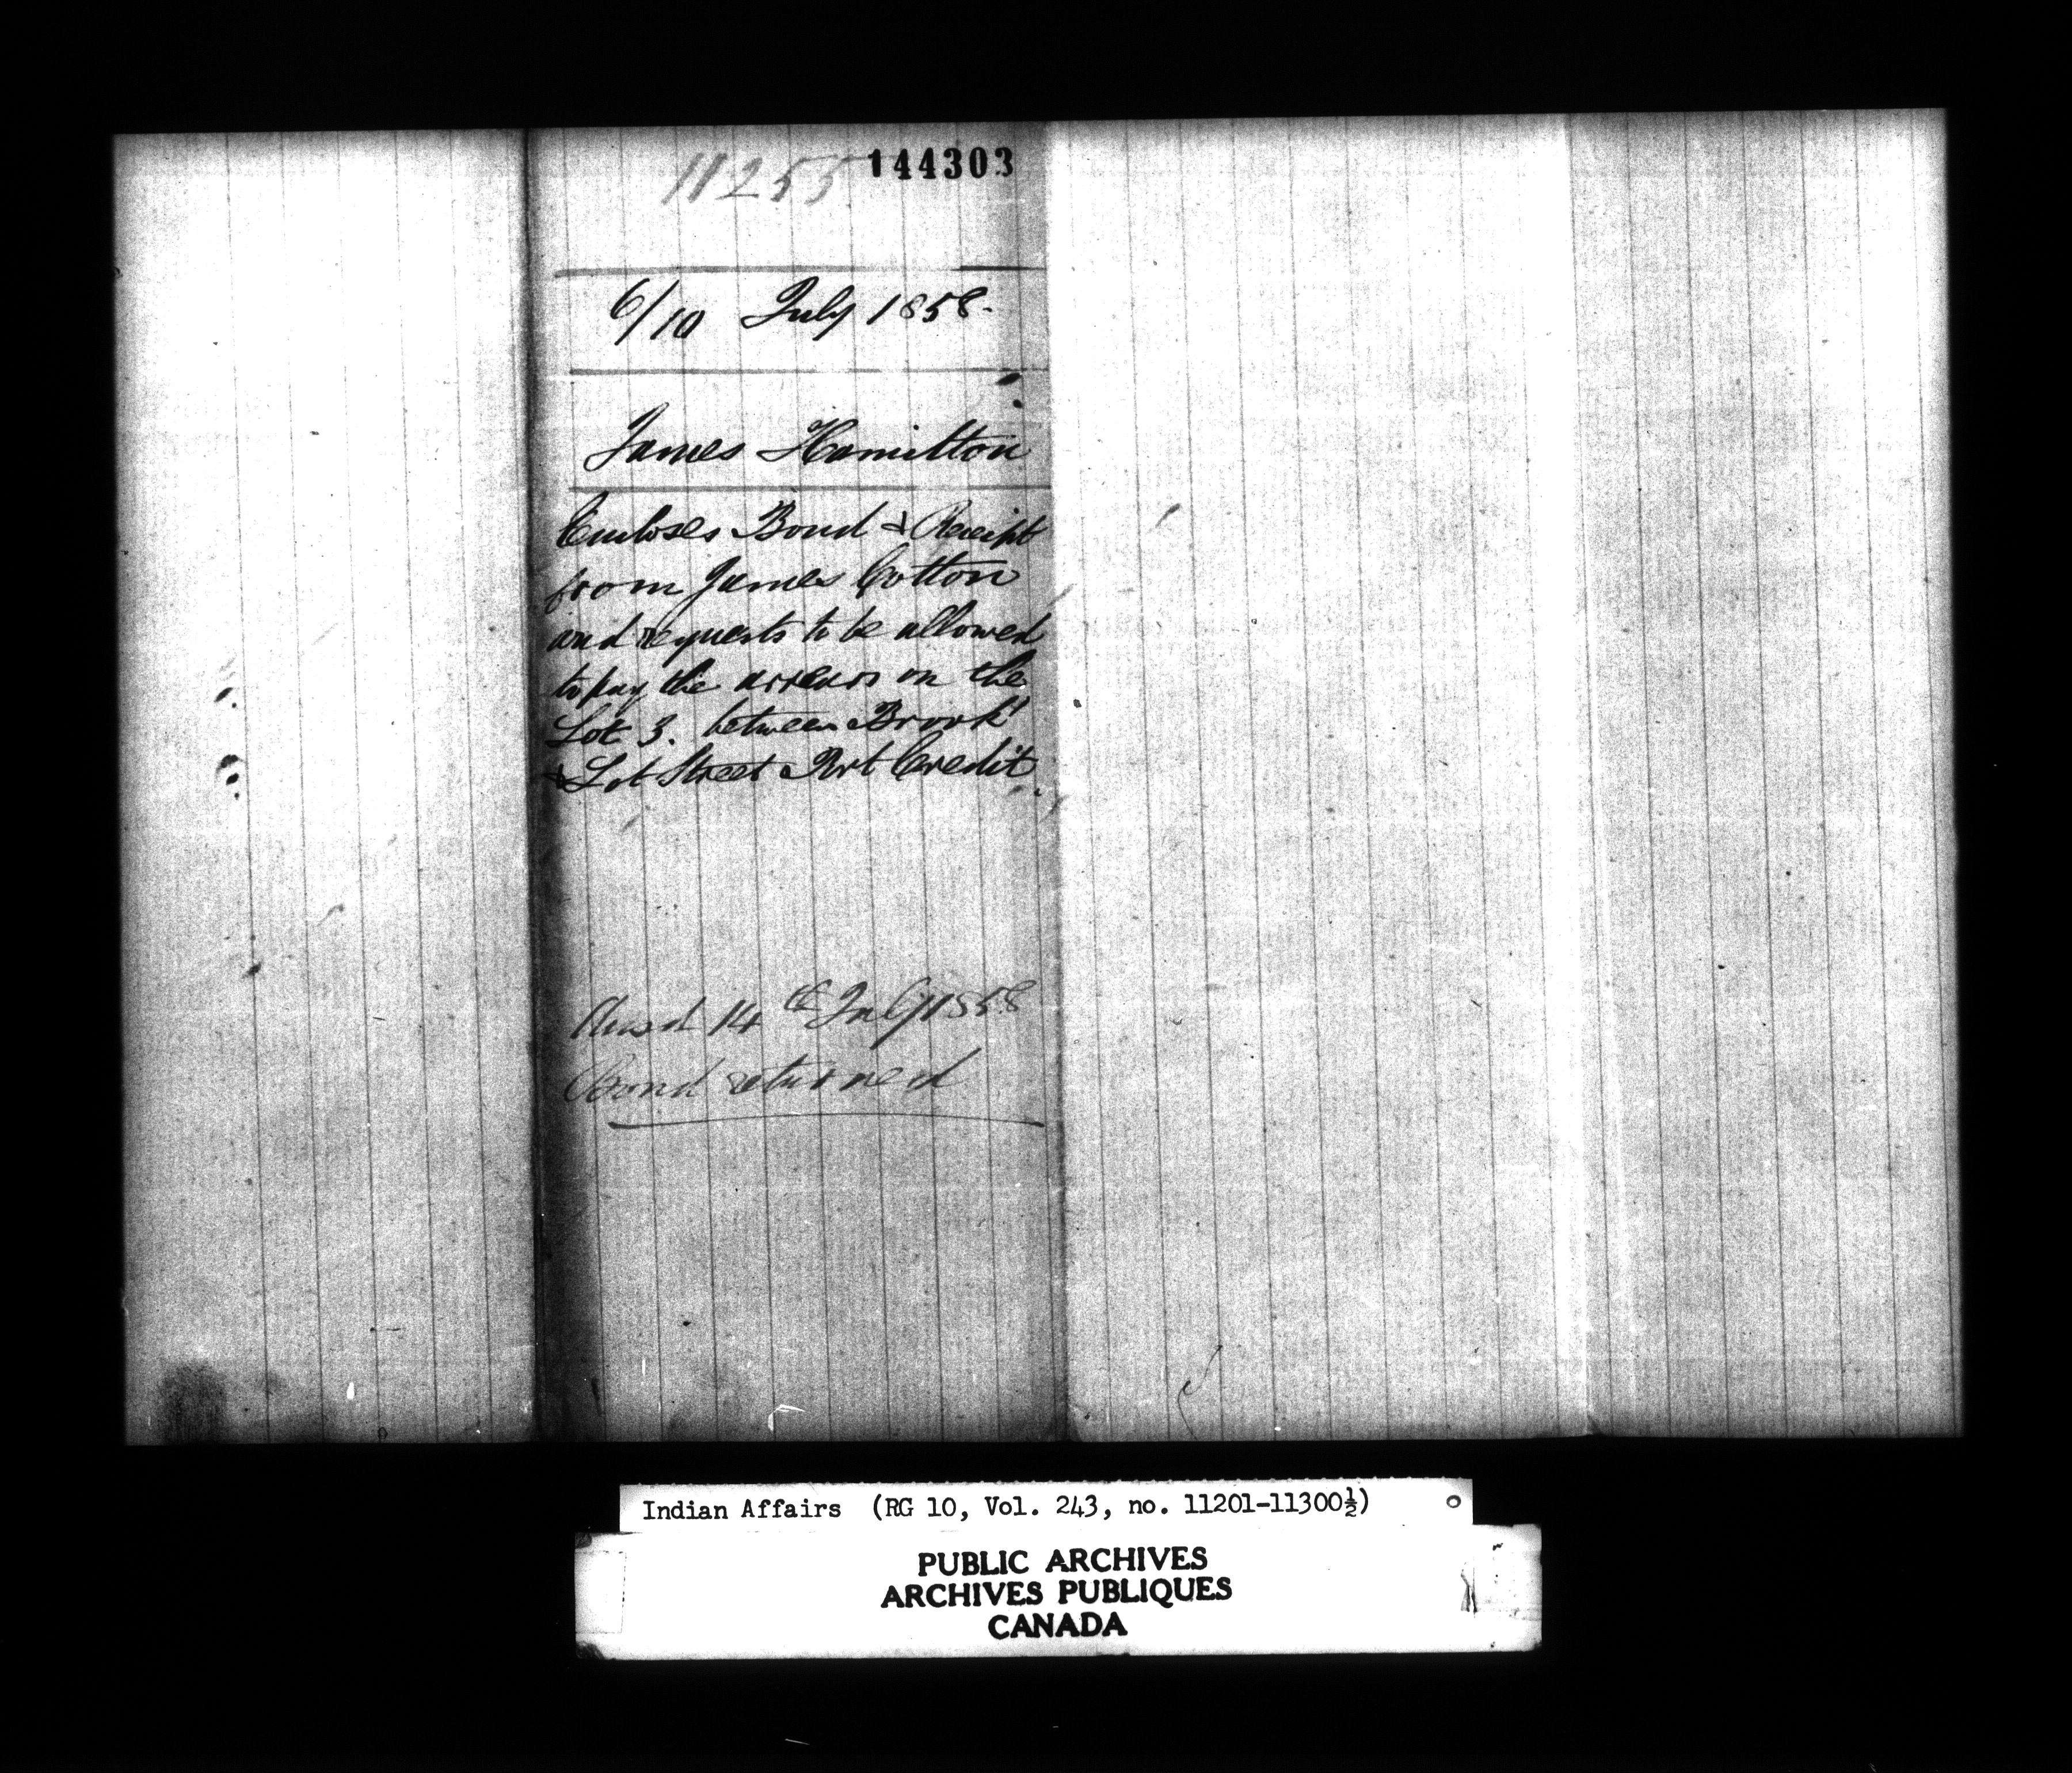 11255 144303
6/10 July 1858.
James Hamilton
Encloses Bond & Receipt
from James Cotton
and requests to be allowed
to pay the arrears on the
Lot 3. between Brook
& Lot Street Port Credit.
Ansd 14th July 1858
Bond returned
Indian Affairs (RG 10, Vol. 243, no. 11201-11300½)
PUBLIC ARCHIVES
ARCHIVES PUBLIQUES
CANADA